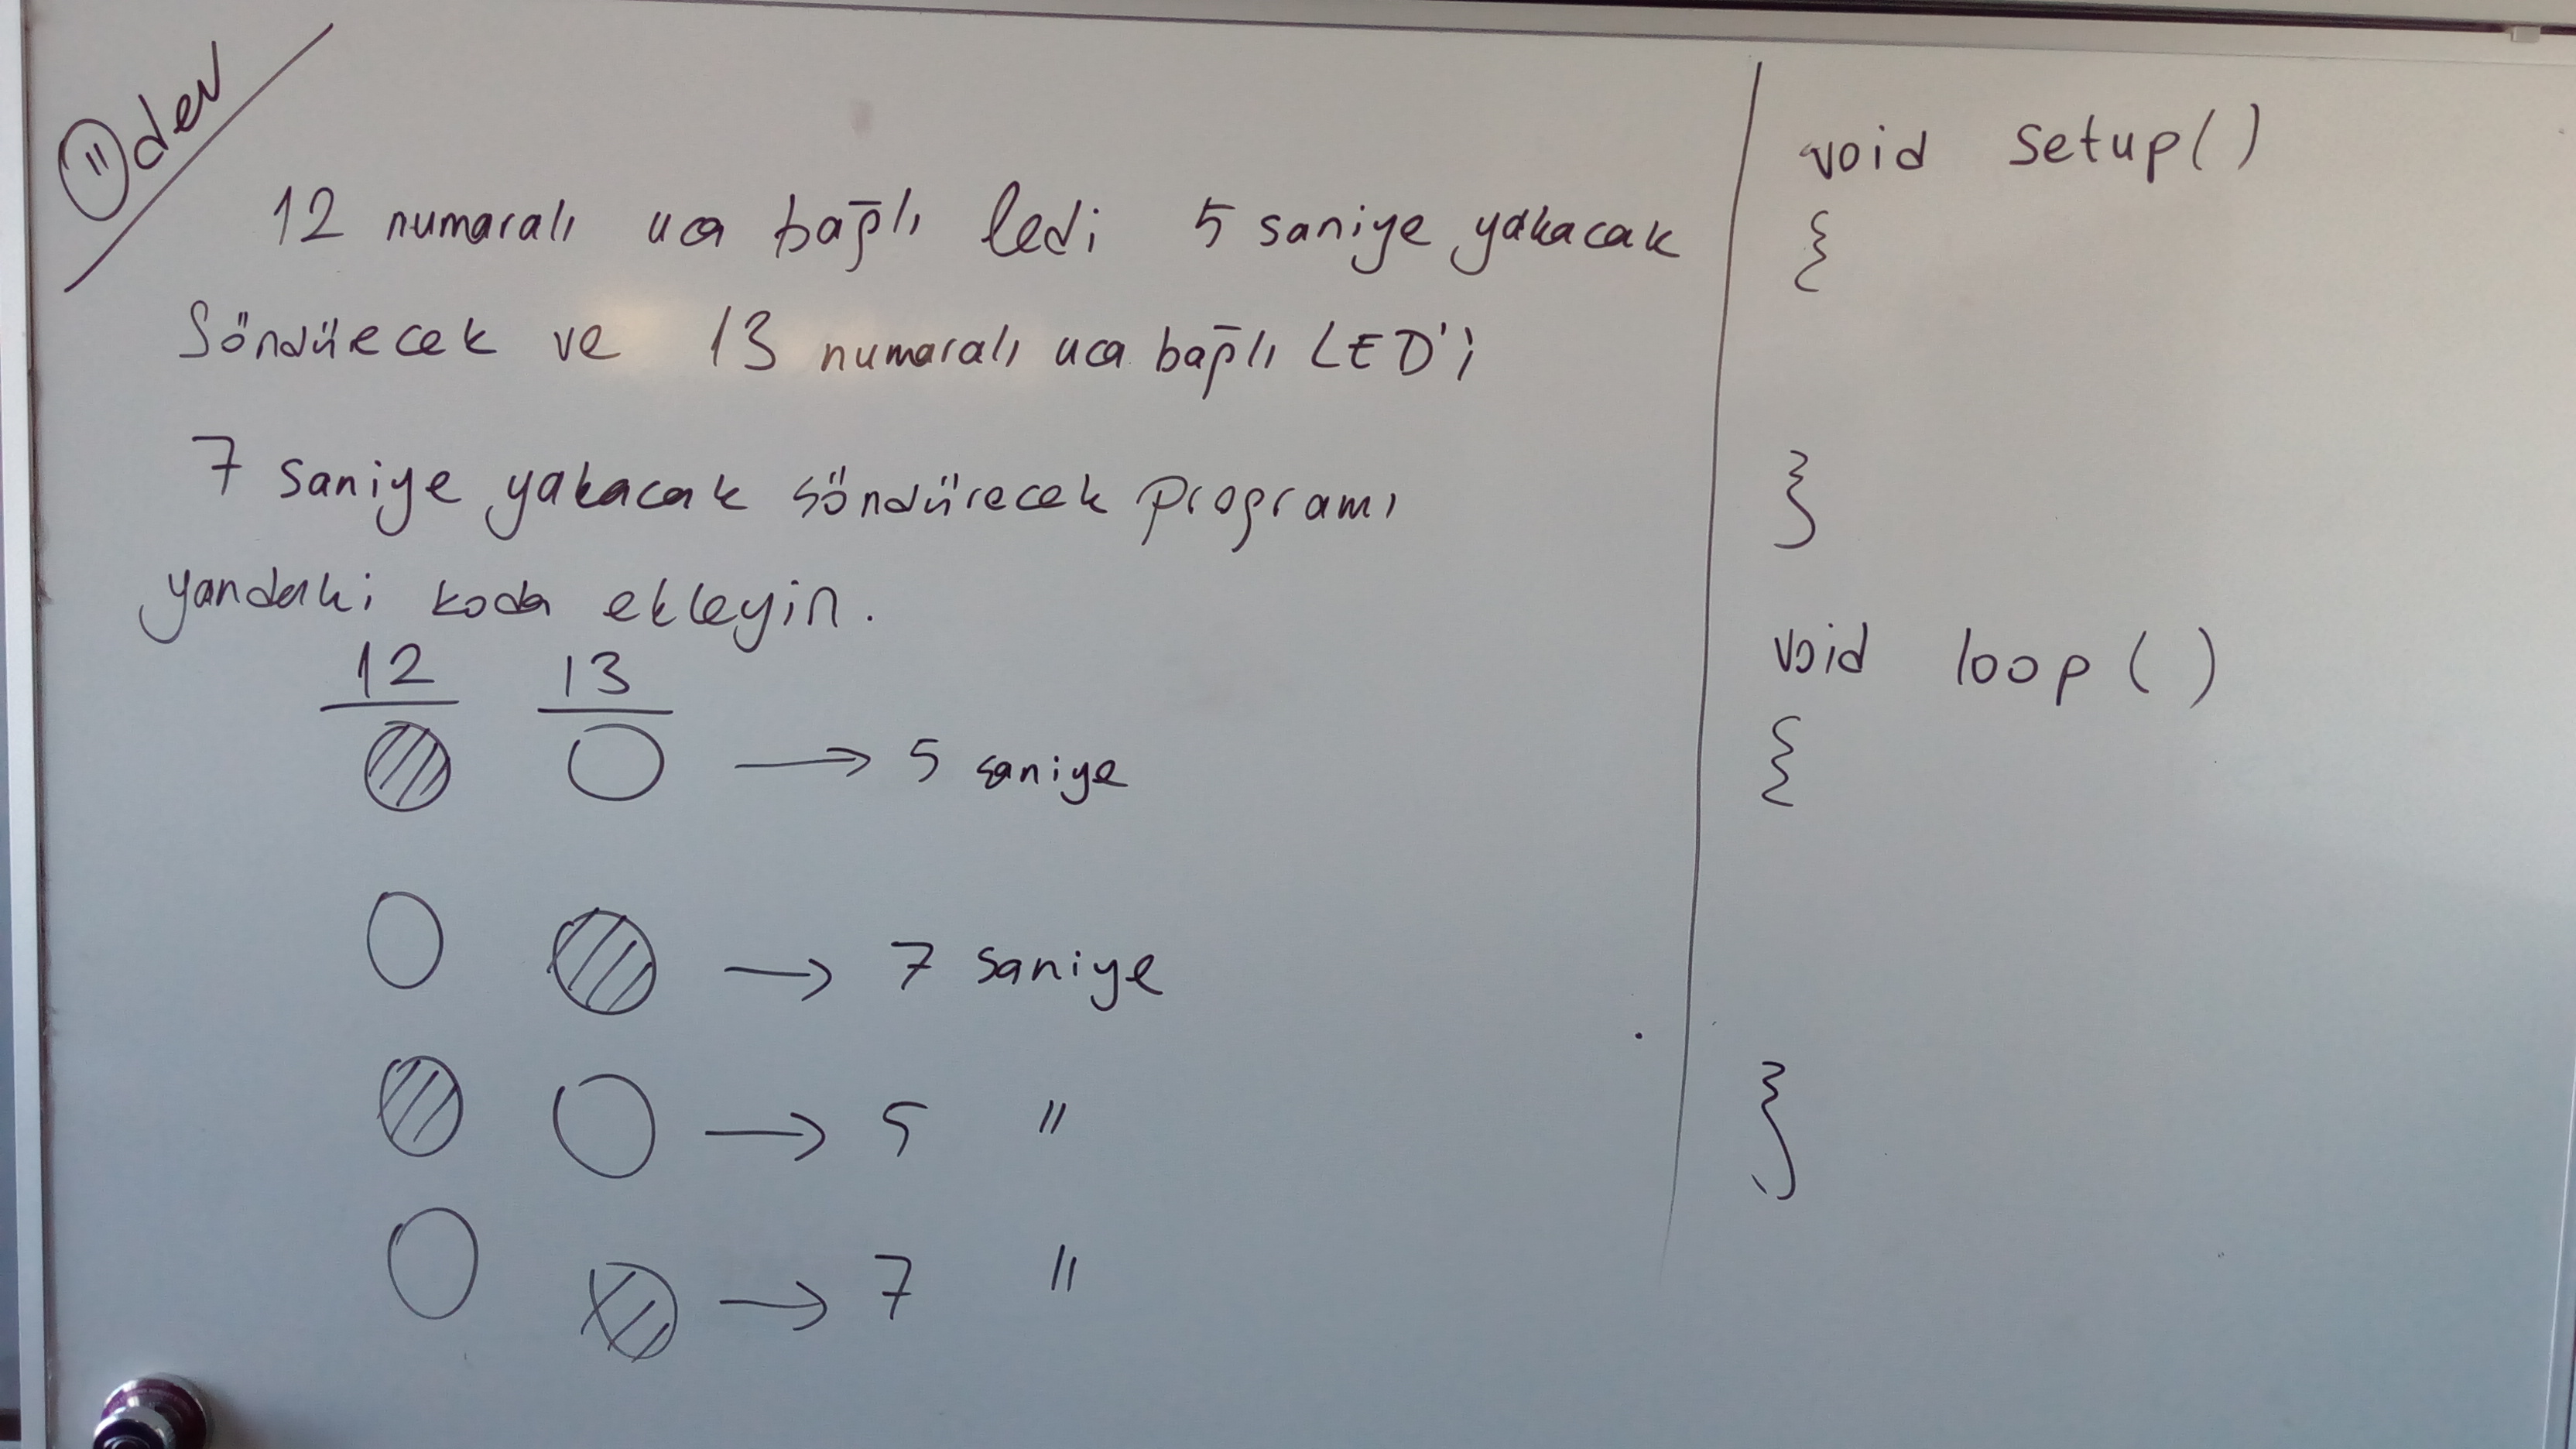 Ödev
12 numaralı uca bağlı ledi 5 saniye yakacak
Söndürecek ve 13 numaralı uca bağlı LED'i
7 saniye yakacak söndürecek programı
yandaki koda ekleyin.
12 13
→ 5 saniye
→ 7 saniye
→ 5 "
→ 7 "
void setup()
{
}
void loop()
{
}